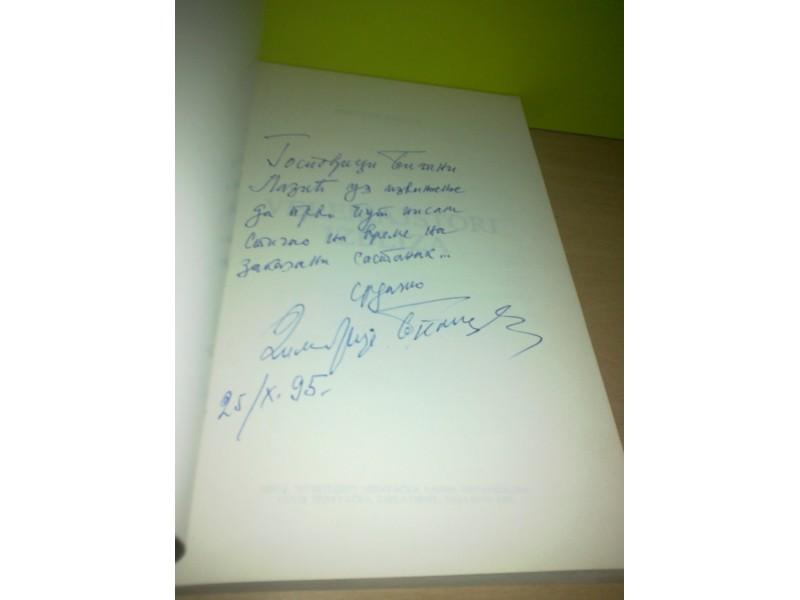 Господици
Лазић уз извињење
да први пут нисам
стигао на време на
заказани састанак...
срдачно
Димитрије
25/X.95.